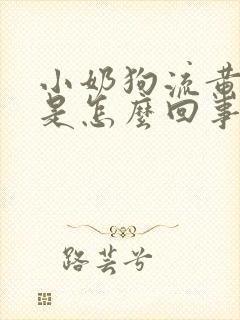 小奶狗流黄
是怎麼回事
路芸兮